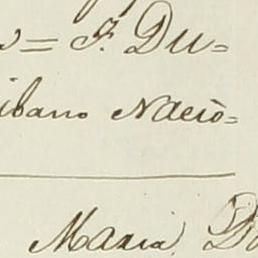 = F. Du=
ibano Nacio=
Maria Do